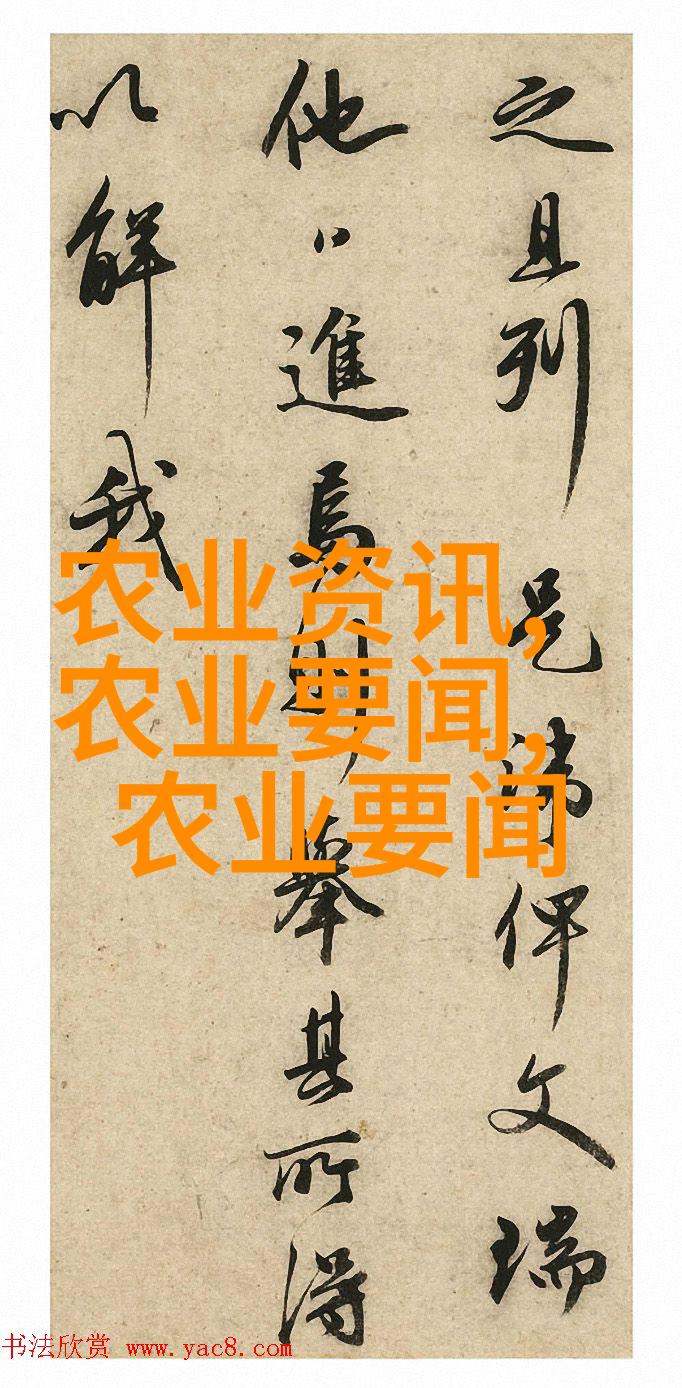 之且列俾文瑞
他進焉則舉其所得
以解我
农业资讯,
农业要闻,
农业要闻
书法欣赏 www.yac8.com